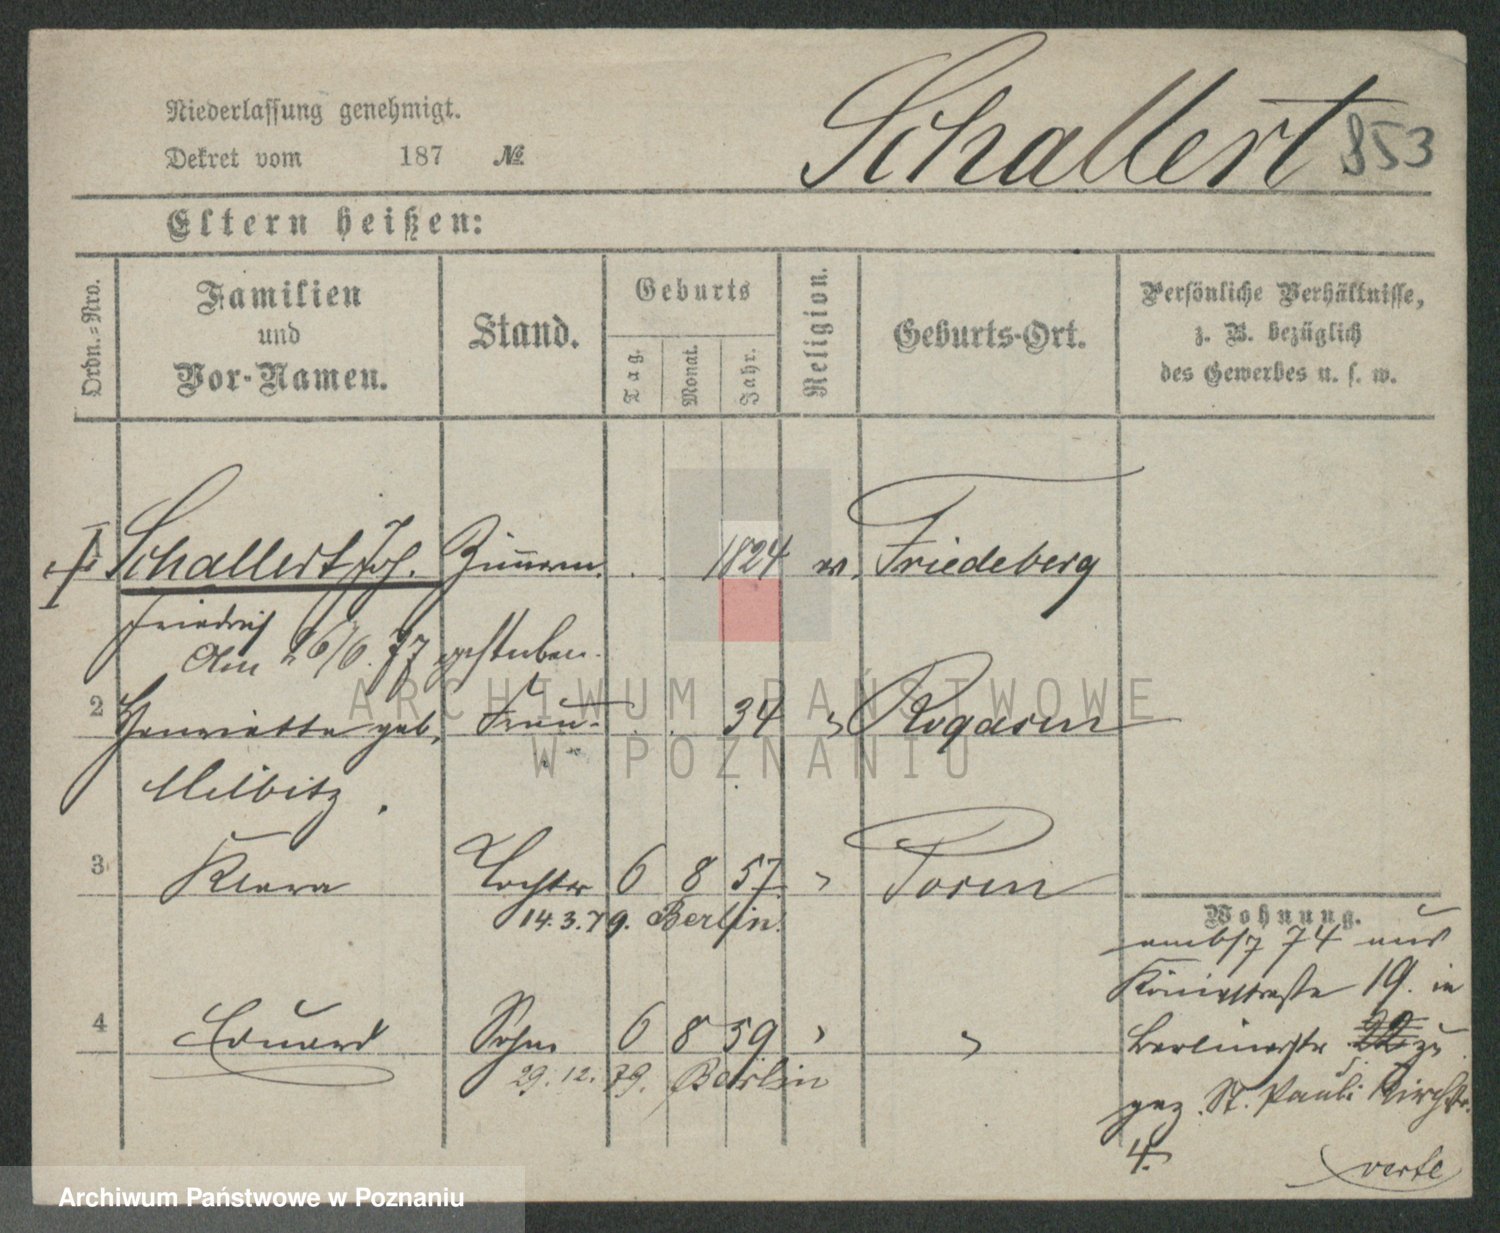 Schallert 853
Niederlassung genehmigt.
Dekret vom 187 №
Eltern heißen:
Ordn.=Nro.
Familien
und
Vor-Namen.
Stand.
Geburts
Tag.
Monat.
Jahr.
Religion.
Geburts-Ort.
Persönliche Verhältnisse,
z. B. bezüglich
des Gewerbes u. s. w.
Schallert Joh. Zimmerm. 1824 Friedeberg
Friedrich
Am 26/6. 77 gestorben.
2 Henriette geb. Frau 34 " Rogasen
Milbitz.
3 Klara Tochter 6 8 57 " Posen
14.3.79. Berlin.
4 Eduard Sohn 6 8 59 " "
29.12.79. Berlin
Wohnung.
74 aus
Königstraße 19. in
Berlinerstr 22 zu
gez. St. Pauli Kirchstr.
4.
verte
ARCHIWUM PAŃSTWOWE
W POZNANIU
Archiwum Państwowe w Poznaniu